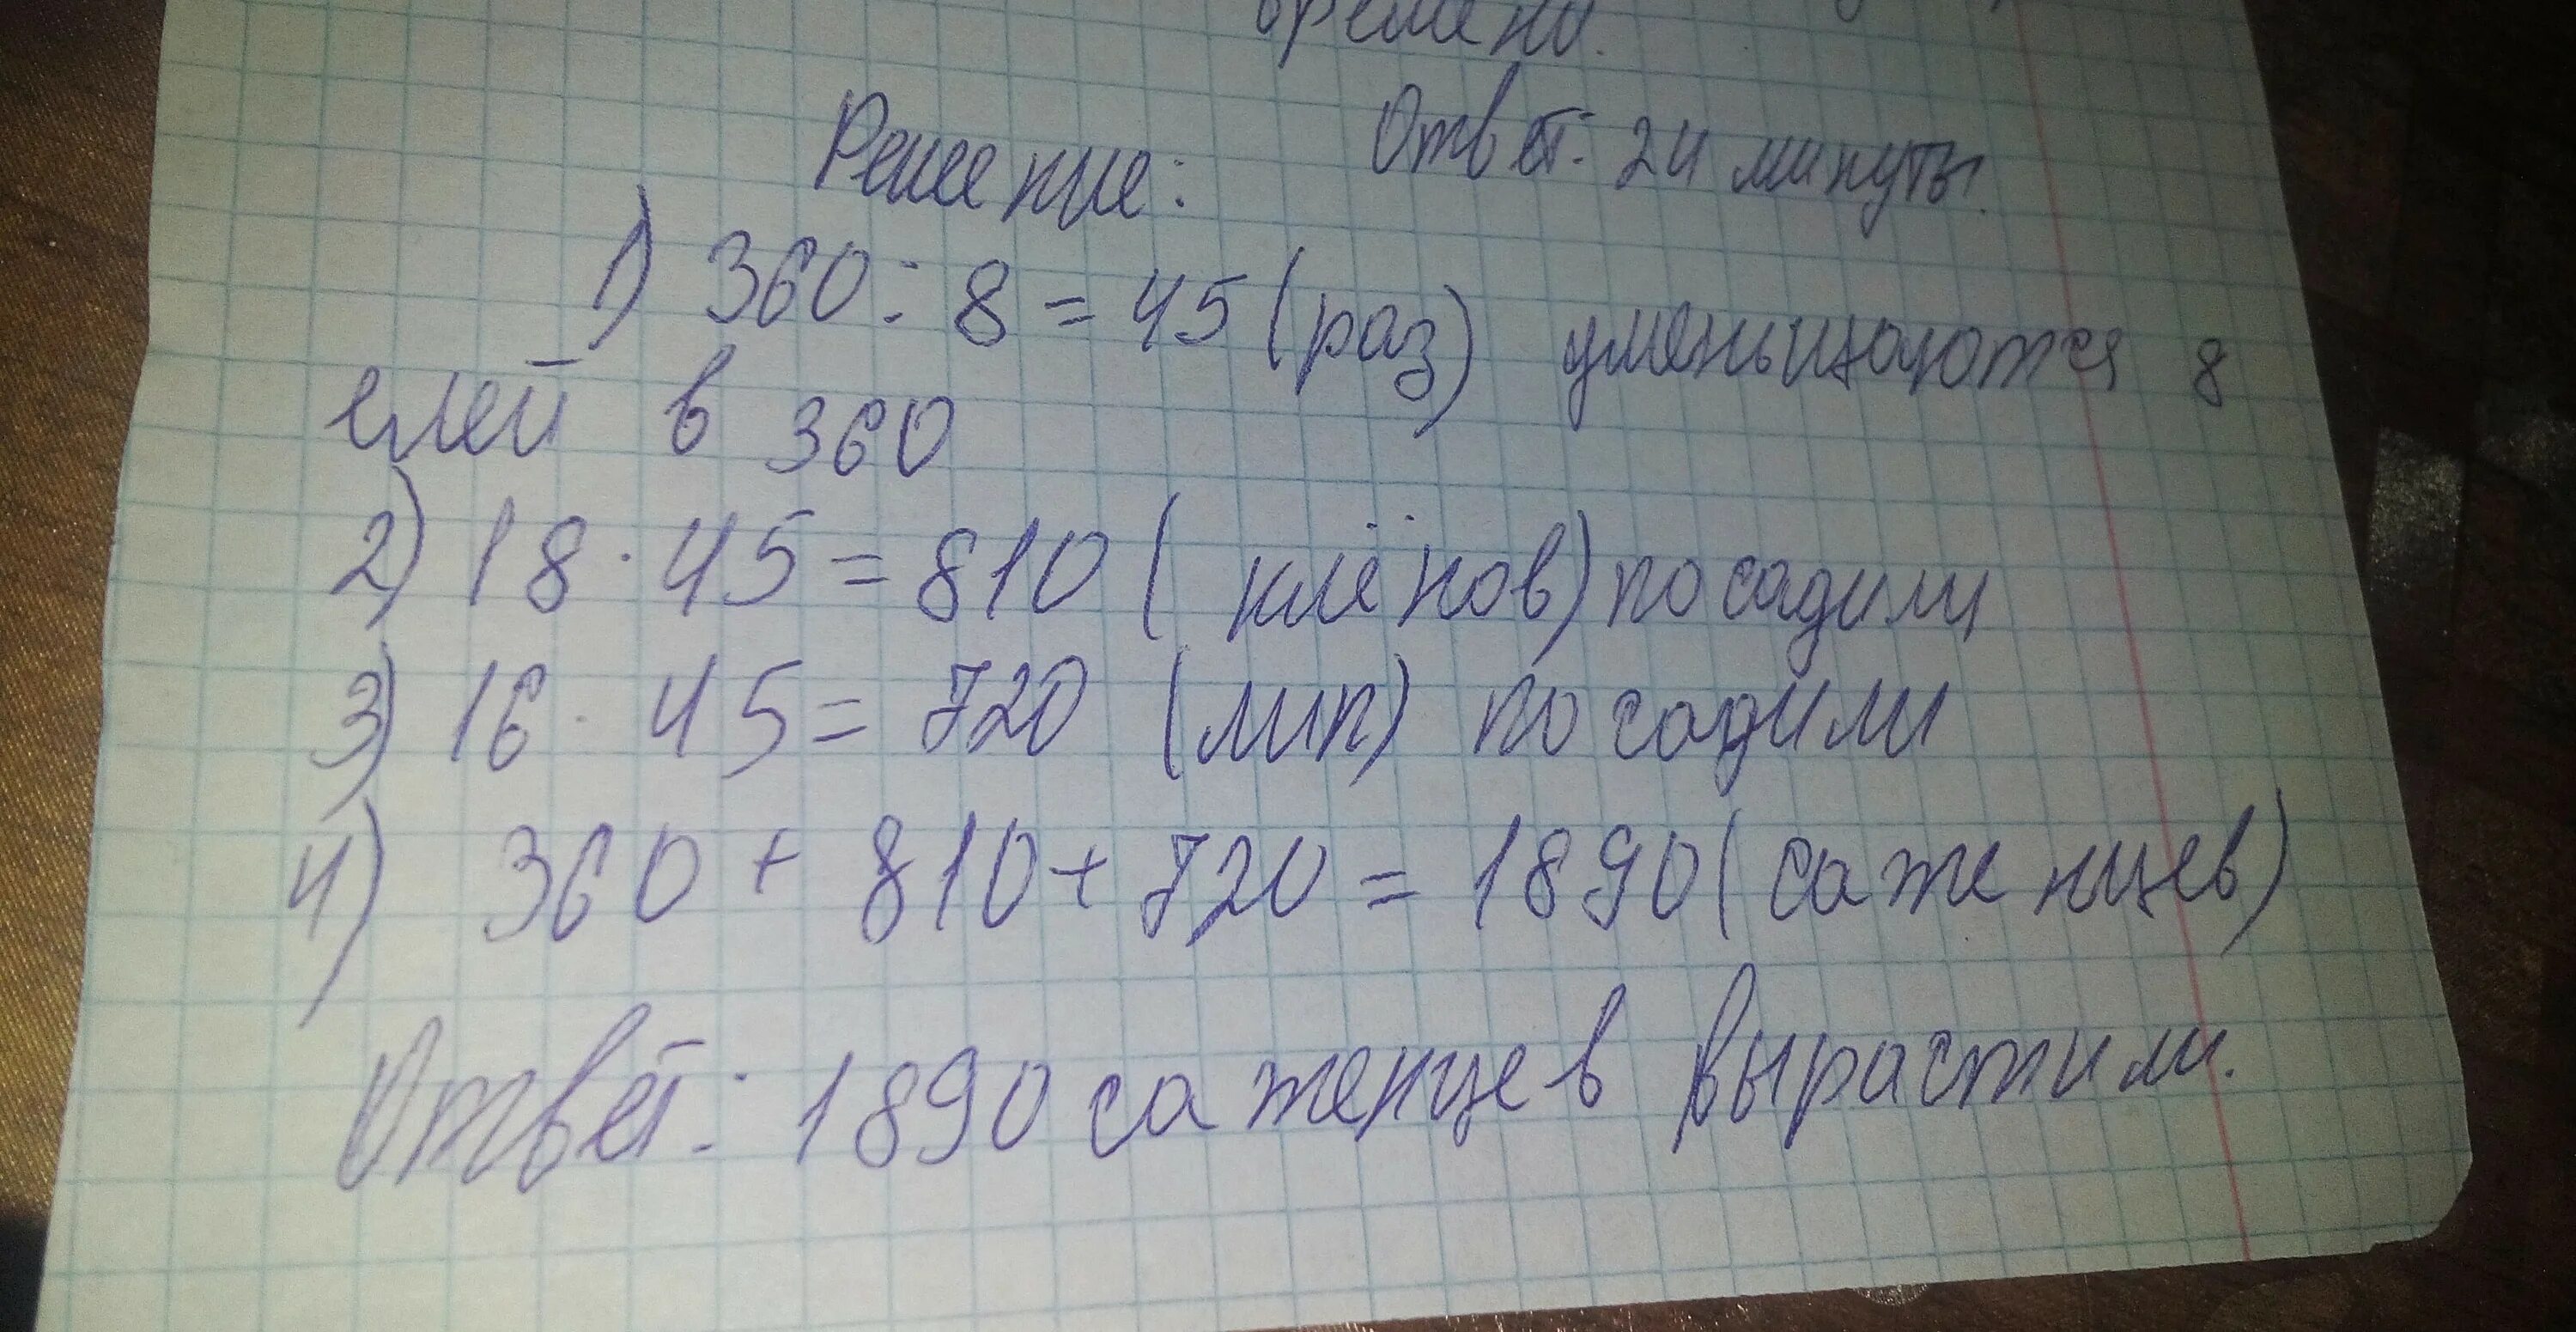 времени.
Решение:
Ответ: 24 минуты.
1) 360 : 8 = 45 (раз) уменьщаются 8
елей в 360
2) 18 · 45 = 810 ( клёнов) посадили
3) 16 · 45 = 720 (лип) посадили
4) 360 + 810 + 720 = 1890 (саженцев)
Ответ: 1890 саженцев вырастили.